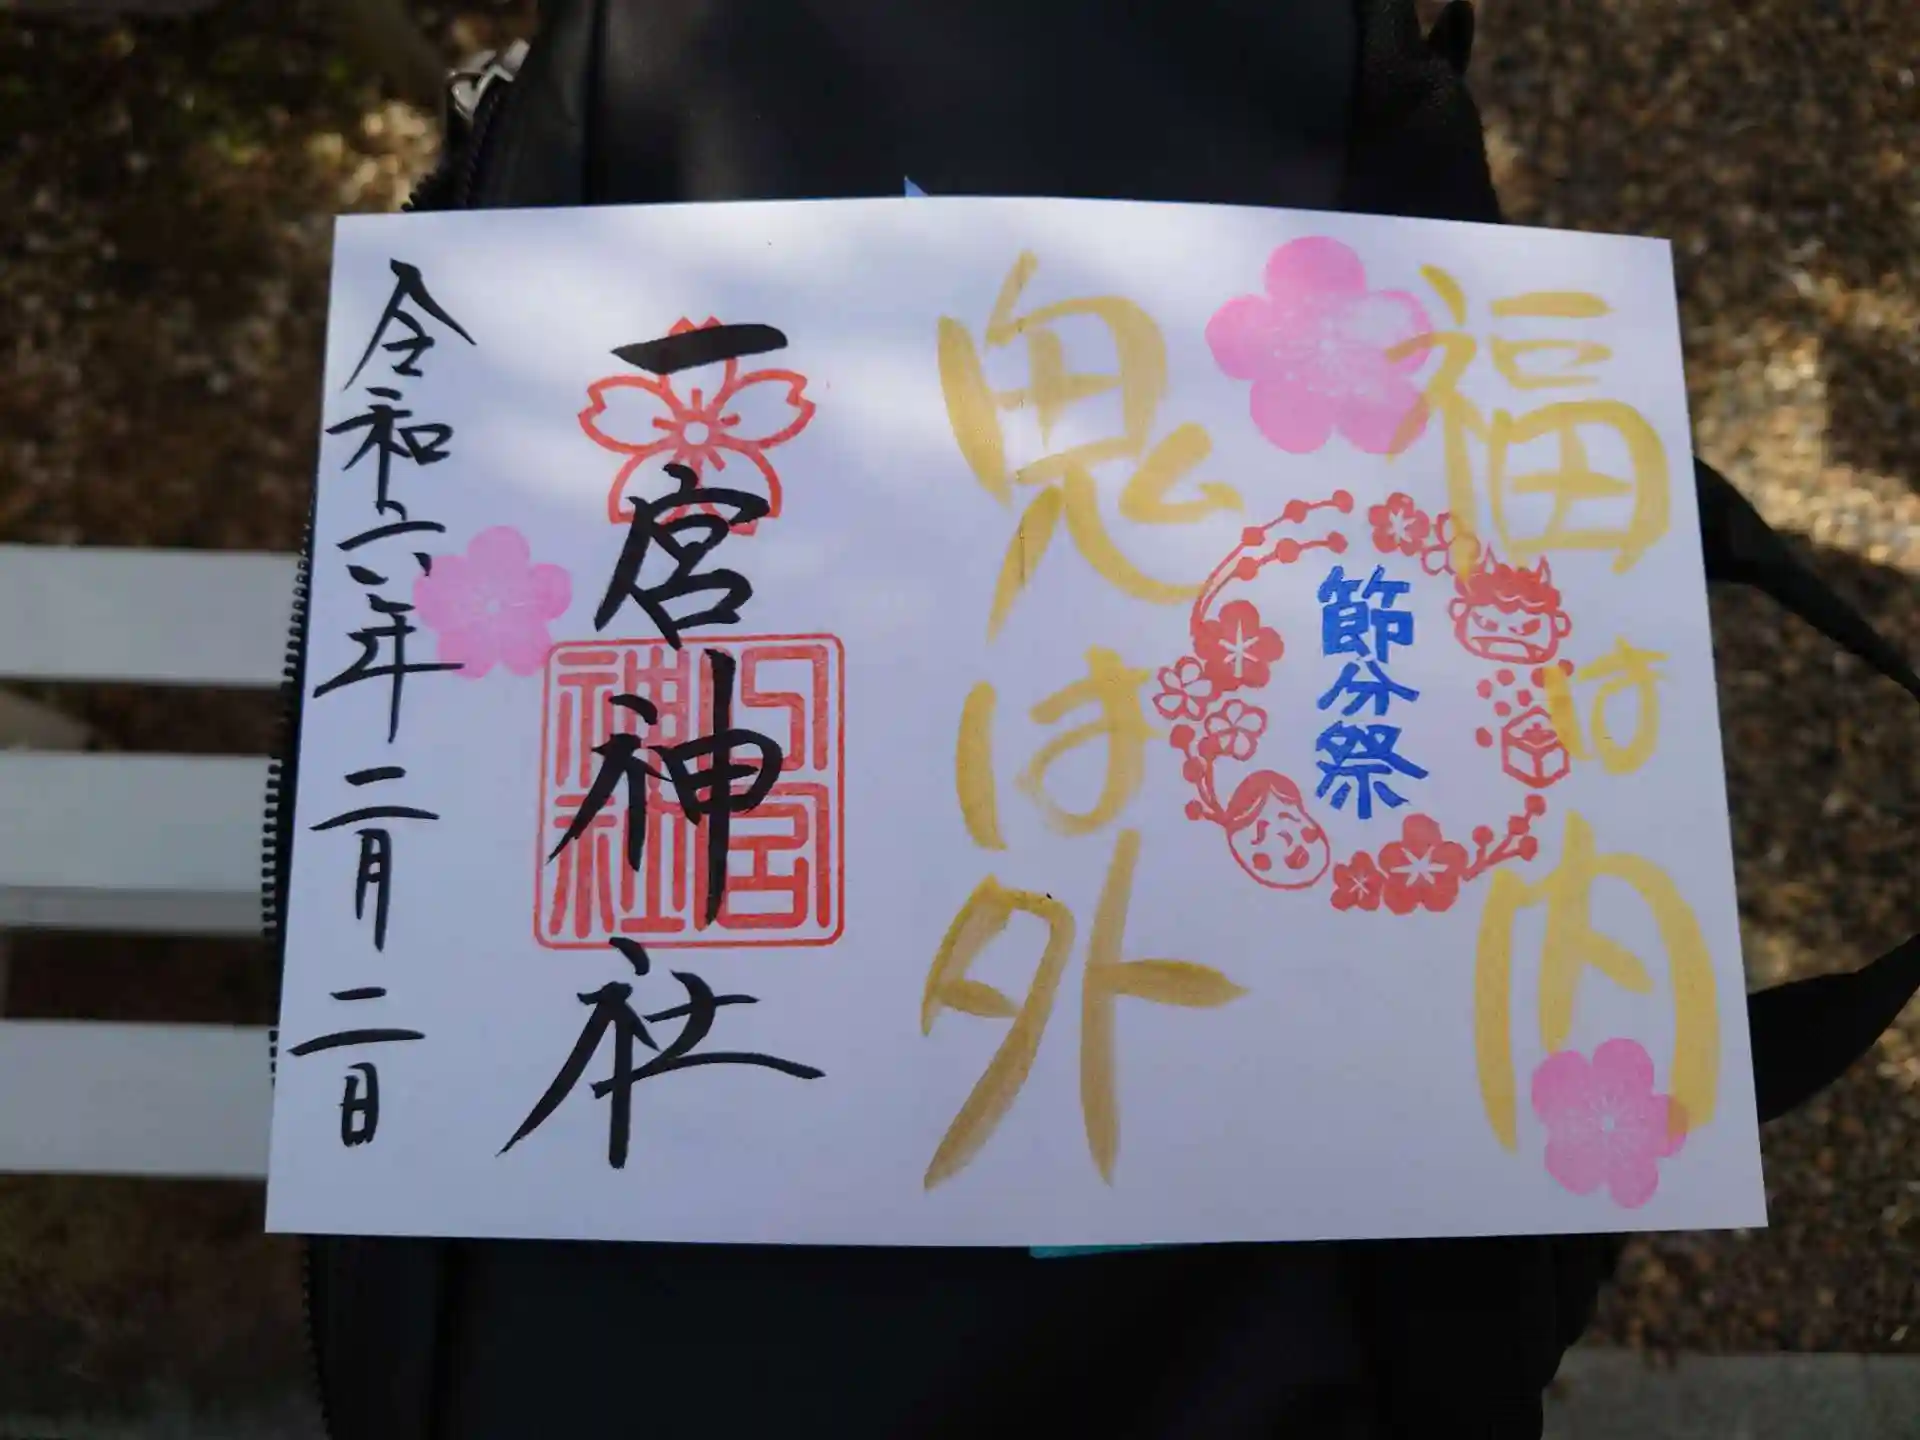 福は内
節分祭
鬼は外
一宮神社
一宮神社
令和六年二月二日